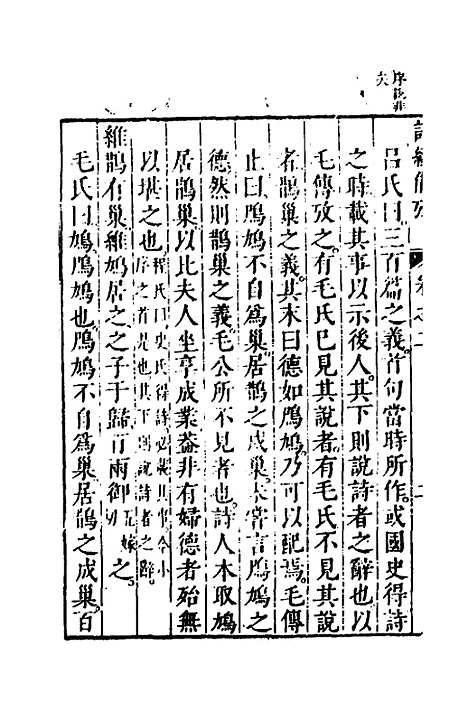 序後非
夫
呂氏曰三百篇之義首句當時所作或國史得詩
之時載其事以示後人其下則說詩者之辭也以
毛傳攷之有毛氏已見其說者有毛氏不見其說
者鵲巢之義其末曰德如鳲鳩乃可以配焉毛傳
止曰鳲鳩不自為巢居鵲之成巢未嘗言鳲鳩之
德然則鵲巢之義毛公所不見者也詩人本取鳩
居鵲巢以比夫人坐享成業蓋非有婦德者殆無
以堪之也程氏曰史氏得詩必載其事今小
序之首是也其下則說詩者之辭
維鵲有巢維鳩居之之子于歸百兩御五嫁
之
毛氏曰鳩鳲鳩也鳲鳩不自為巢居鵲之成巢百